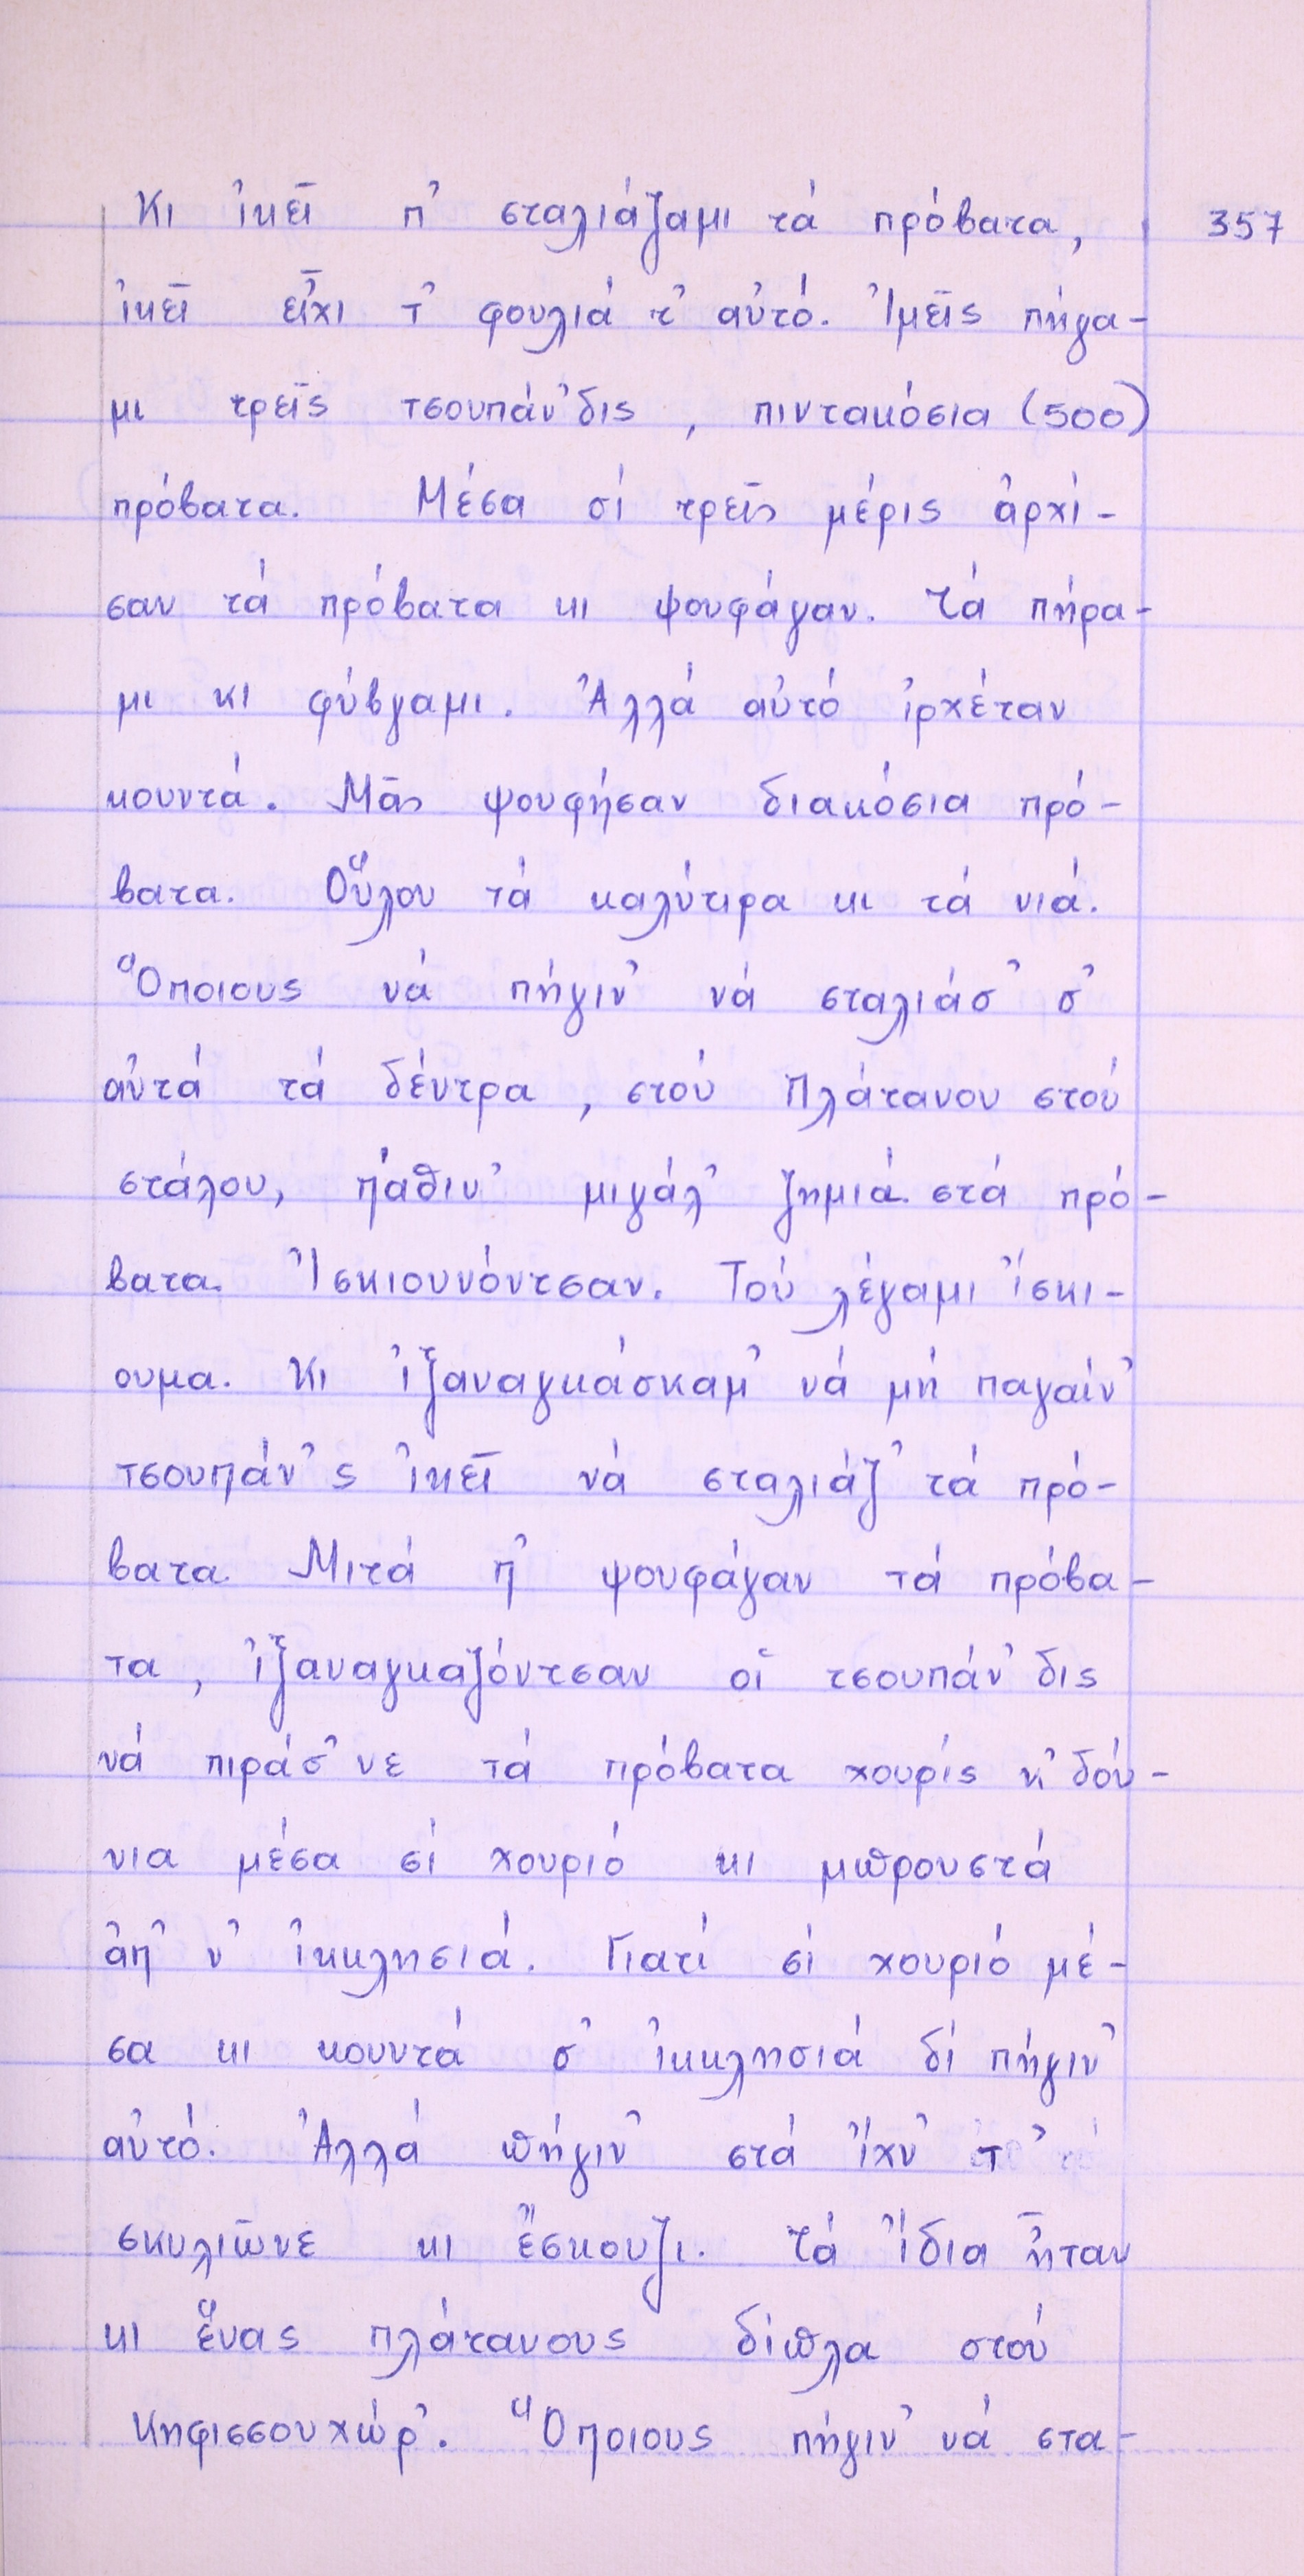 Κι ἰκεῖ π' σταλιάζαμι τά πρόβατα, 357
ἰκεῖ εἶχι τ' φουλιά τ' αὐτό. Ἰμεῖς πήγα-
μι τρεῖς τσουπάν'δις, πιντακόσια (500)
πρόβατα. Μέσα σί τρεῖς μέρις ἀρχί-
σαν τά πρόβατα κι ψουφάγαν. Τά πήρα-
μι κι φύβγαμι. Ἀλλά αὐτό ἰρχέταν
κουντά. Μᾶς ψουφήσαν διακόσια πρό-
βατα. Οὕλου τά καλύτιρα κι τά νιά.
Ὅποιους νά πήγιν' νά σταλιάσ' σ'
αὐτά τά δέντρα, στού Πλάτανου στού
στάλου, πάθιν' μιγάλ' ζημιά στά πρό-
βατα. Ἰσκιουνόντσαν. Τού λέγαμι ἴσκι-
ουμα. Κι ἰξαναγκάσκαμ' νά μή παγαίν'
τσουπάν'ς ἰκεῖ νά σταλιάζ' τά πρό-
βατα. Μιτά π' ψουφάγαν τά πρόβα-
τα, ἰξαναγκαζόντσαν οἱ τσουπάν'δις
νά πιράσ'νε τά πρόβατα χουρίς κ'δού-
νια μέσα σί χουριό κι μπρουστά
ἀπ' ν' ἰκκλησιά. Γιατί σί χουριό μέ-
σα κι κουντά σ' ἰκκλησιά δί πήγιν'
αὐτό. Ἀλλά πήγιν' στά ἴχν' τ'
σκυλιῶνε κι ἔσκουζι. Τά ἴδια ἦταν
κι ἕνας πλάτανους δίπλα στού
Κηφισσουχώρ'. Ὅποιους πήγιν' νά στα-